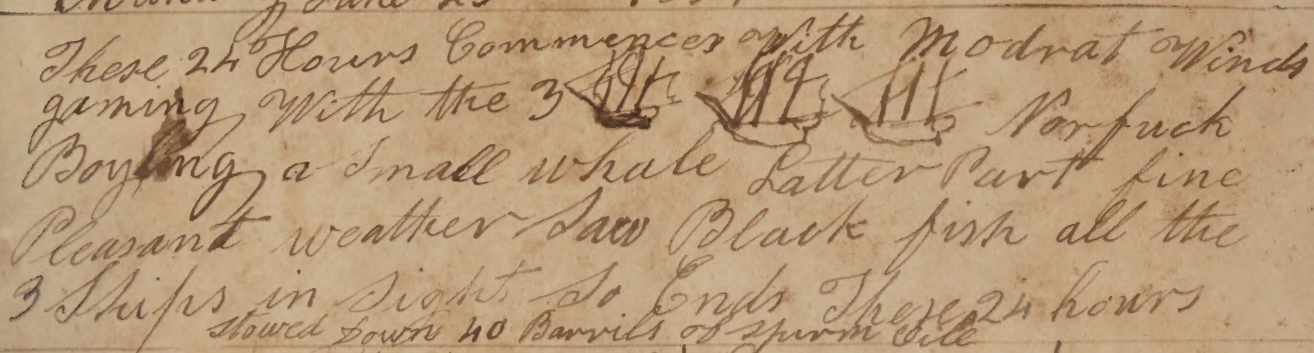 of June 23
These 24 Hours Commences With Modrat Winds
gaming With the 3 Norfuck
Boyling a Small whale Latter Part fine
Pleasant weather Saw Black fish all the
3 Ships in Sight So Ends These 24 hours
stowed Down 40 Barrils of Spurm Oile